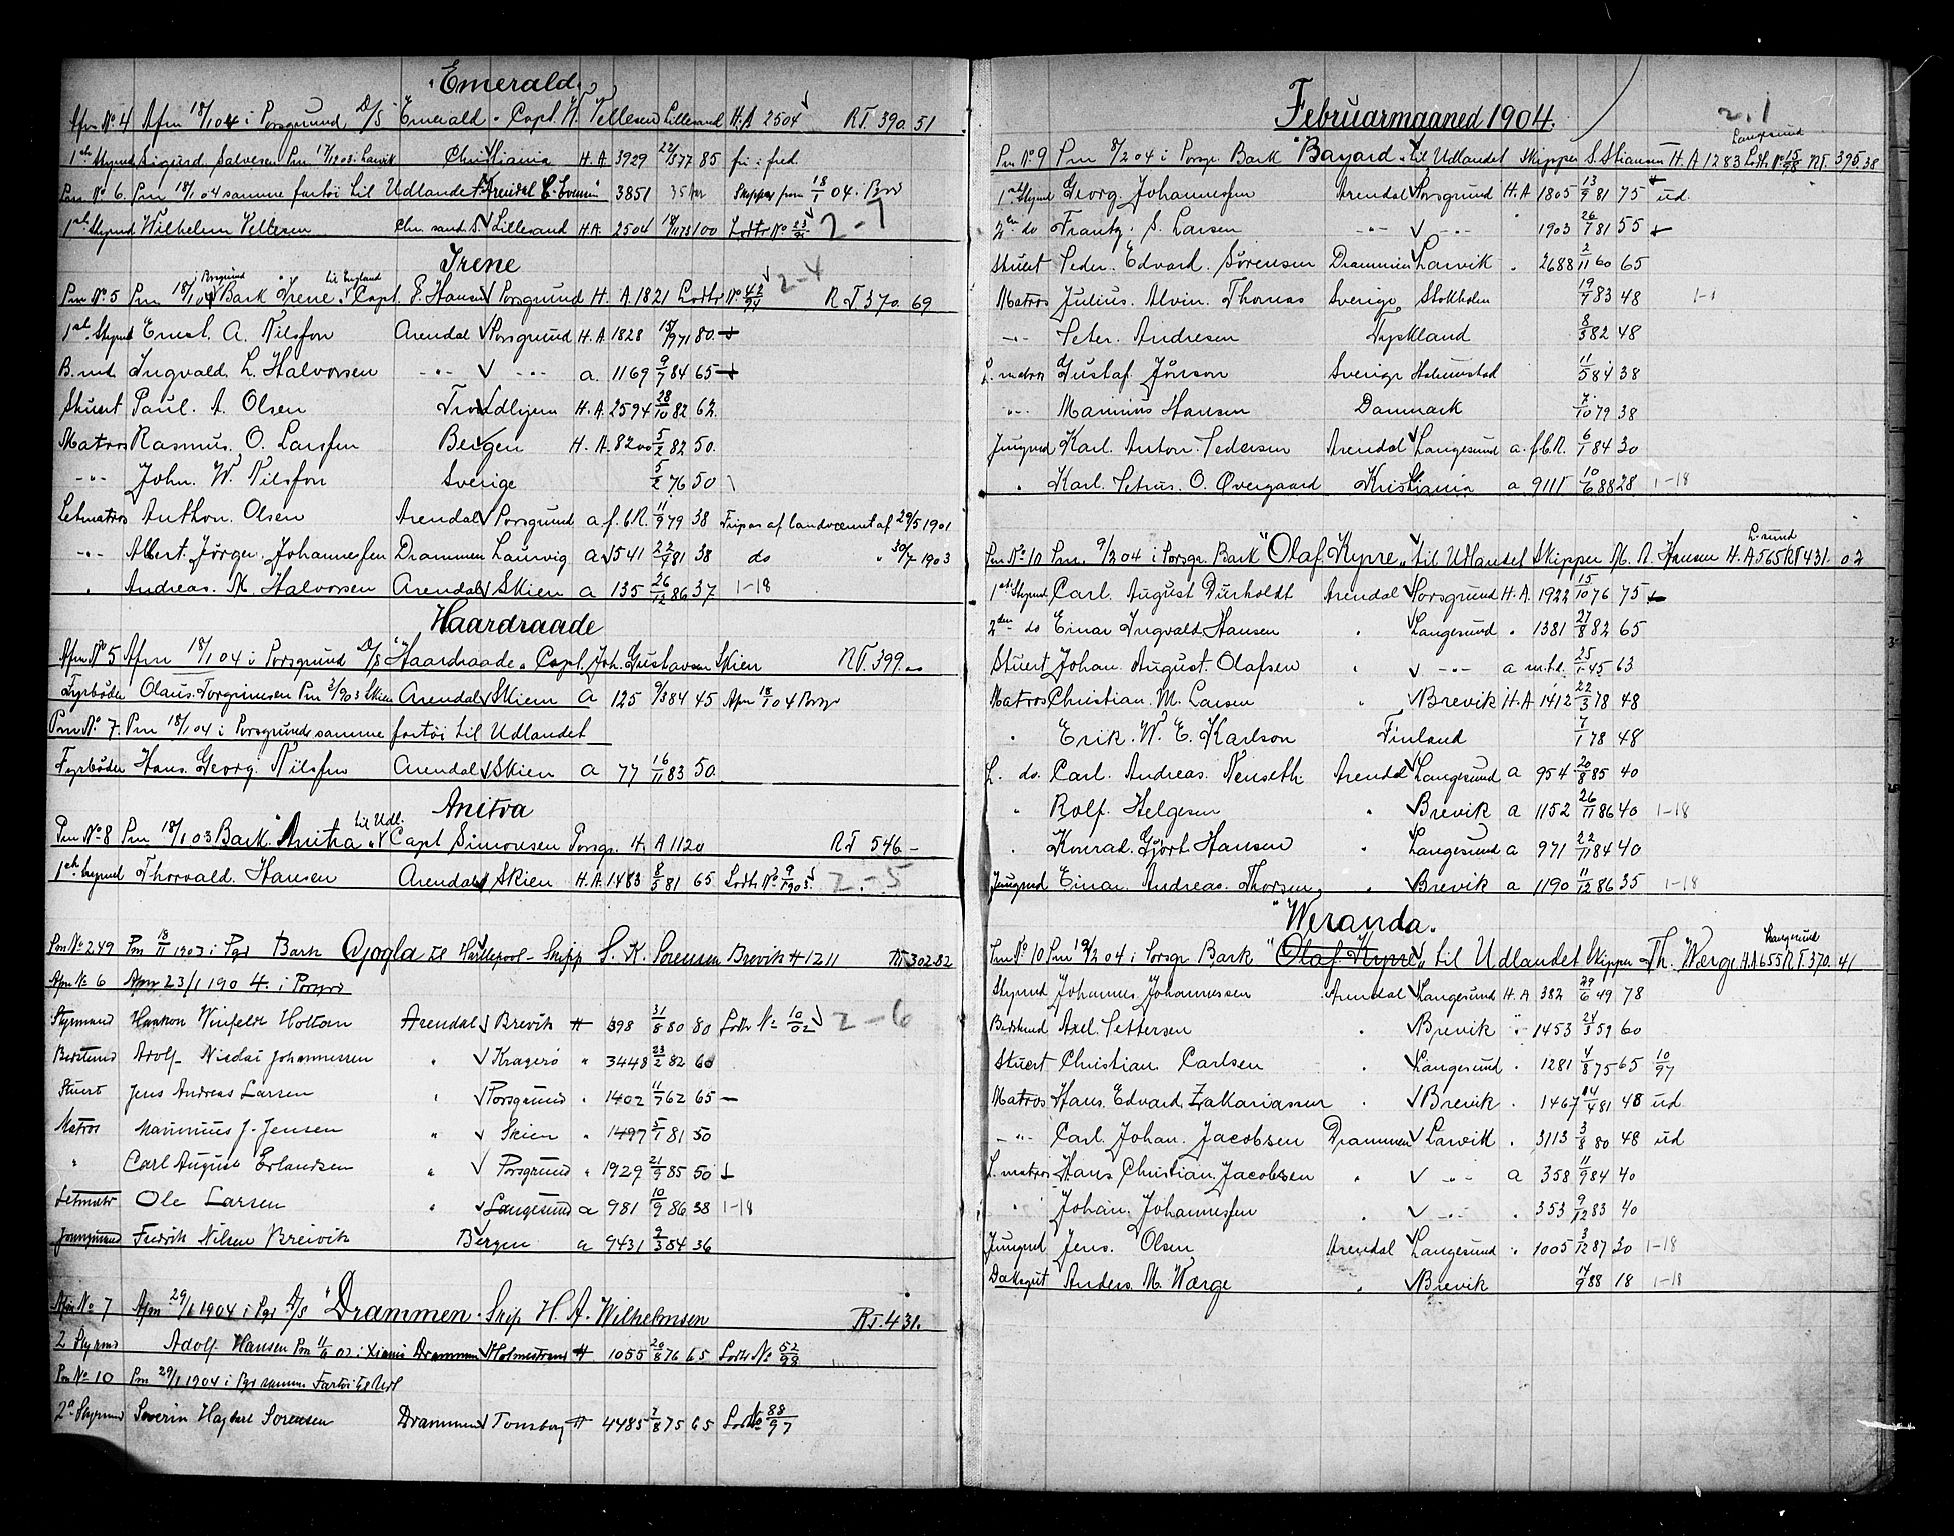 "Emerald"
Afm No 4 Afm 18/1 04 i Porsgrund D/S "Emerald" Capt. W. Tellesen Lillesand H.A 2504 RT. 390.51
1ste Styrmd Sigurd Salvesen Pm 17/12 03 Larvik Christiania H.A. 3929 77 85
Pm No 6. Pm 18/1 04 samme fartöi til Udlandet Arendal 3851 Skipper fra 18/1 04
1ste Styrmd Wilhelm Tellesen Chr. sand S. Lillesand H.A. 2504 100 Lodtr No 2-7
Irene
Porsgrund til England
Pm No 5 Pm 18/1 04 Bark "Irene" Capt. E. Hansen Porsgrund H.A. 1821 Lodtr No 2-4 RT 370. 69
1ste Styrmd Ernst A. Nilssen Arendal Porsgrund H.A. 1828 71 80
B.md. Ingvald L. Halvorsen -"- -"- a. 1169 9/7 84 65
Stuert Paul. A. Olsen Trondhjem H.A. 2594 28/10 82 62
Matros Rasmus. O. Larssen Bergen H.A. 8200 5/2 82 50.
-"- John. W. Nilssen Sverige 5/2 76 50
Letmatros Anthon. Olsen Arendal Porsgrund a.f.b.R. 11/9 79 38 Fripas af landvernet af 29/5 1901
-"- Albert. Jörgen. Johannessen Drammen Laurvig a 1541 81 38 do " 30/7 1903
" Andreas. M. Halvorsen Arendal Skien a 135 26/12 86 37 1-18
Haardraade
Afm No 5 Afm 18/1 04 i Porsgrund D/S "Haardraade" Capt. Joh. Gustavsen Skien RT. 399.
Fyrböder Olaus. Torgrimsen Pm 1903 Skien Arendal Skien a 125 9/3 84 45 Afm 18/1 04 Porsgr
Pm No 7. Pm 18/1 04 i Porsgrund samme fartöi til Udlandet
Fyrböder Hans. Georg. Nilssen Arendal Skien a 77 16/11 83 50.
Anitra
til Udl.
Pm No 8 Pm 18/1 03 Bark. "Anitra" Capt Simonsen Porsgr. H.A 1120 RT 546 -
1ste Styrmd Thorvald. Hansen Arendal Skien H.A. 1483 8/5 81 65 Lodtr No 9/1903. 2-5
Pm No 249 Pm 18/11 1903 i Pgr Bark Gjogla til Hartlepool - Skipp S. K. Sorensen Brevik H 1211 RT 302.82
Afm No 6 Afm 23/1 1904. i Porsgrd
Styrmand Haakon Winfeldt Holtom Arendal Brevik H 398 31/8 80 80 Lodtr No 10/02 2-6
Bestmd Adolf Nicolai Johannessen " Kragerö " 3448 23/2 82 60
Stuert Jens Andreas Larsen " Porsgrund " 1402 11/7 62 65
Matros Maximius J. Jensen " Skien " 1497 5/1 81 50
" Carl August Erlandsen " Porsgrund " 1929 21/9 85 50
Letmatr Ole Larsen " Langesund a 981 10/9 86 38 1-18
Jungmand Fredrik Nilsen Breivik Bergen a 9431 9/3 84 36
Afm No 7 Afm 29/1 1904 i Pgr D/S "Drammen" Skip H. A. Wilhelmsen RT. 431.
2 Styrmd Adolf Hansen Pm i Xiania Drammen Holmestrand H 1055 20/8 76 65 Lodtr No 52/99
Pm No 10 Pm 29/1 1904 i Pgr samme Fartöi til Udl
2n Styrmd Severin Hagbart Sorensen Drammen Tonsberg H 4485 7/8 75 65 Lodtr No 88/97
Februarmaaned 1904.
2.1
Langesund
Pm No 9 Pm 8/2 04 i Porsgr. Bark "Bayard" til Udlandet Skipper S. Stiansen H.A 1283 Lodtr. No 15/98 RT. 395.38
1ste Styrmd Georg Johannessen Arendal Porsgrund H.A 1805 13/9 81 75 ud.
2en do Frantz. S. Larsen -"- -"- " 1903 26/7 81 55
Stuert Peder. Edvard. Sörensen Drammen Larvik " 2688 2/11 60 65
Matros Julius. Alvin. Thomas Sverige Stokholm 19/7 83 48
-"- Peter. Andresen Tyskland 8/3 82 48
L. matros Gustaf Jönson Sverige Halmstad 11/5 84 38
-"- Marinus Hansen Danmark 7/10 79 38
Jungmd Karl. Anton. Pedersen Arendal Langesund a.f.b.R. 6/1 84 30
" Karl. Petrus. O. Övergaard Kristiania a 9111 10/6 88 28 1-18
L.sund
Pm No 10 Pm. 9/2 04 i Porsgr. Bark "Olaf Kyrre" til Udlandet Skipper M. A. Hansen H.A 565 RT 431. 02
1ste Styrmd Carl. August Dürholdt Arendal Porsgrund H.A. 1922 15/10 76 75
2den do Einar Ingvald Hansen " Langesund " 1381 27/8 82 65
Stuert Johan. August. Olafsen " -"- a m.t.d. 25/1 45 63
Matros Christian. M. Larsen " Brevik H.A 1412 22/3 78 48
" Erik. W. E. Karlson Finland 7/1 78 48
L. do. Carl. Andreas. Nenseth Arendal Langesund a 954 20/8 85 40
" Rolf. Helgesen " Brevik a 1152 26/11 86 40 1-18
" Konrad. Gjört Hansen " Langesund a 971 22/11 84 40
Jungmd Einar. Andreas. Thorsen " Brevik a 1190 11/12 86 35 1-18
"Weranda.
Langesund
Pm No 10 Pm 19/2 04 i Porsgr Bark "Olaf Kyrre" til Udlandet Skipper Th. Wærge H.A 655 RT. 370. 41
Styrmd Johannes Johannessen Arendal Langesund H.A 382 29/6 49 78
Bestmd Axel. Pettersen " Brevik " 1453 24/3 59 60
Stuert Christian Carlsen " Langesund " 1281 4/8 75 65 10/97
Matros Hans. Edvard. Zakariassen " Brevik " 1467 14/4 81 48 ud
-"- Carl. Johan. Jacobsen Drammen Larvik " 3113 3/8 80 48 ud
L. matros Hans Christian Jacobsen " -"- a 358 11/9 84 40
" Johan. Johannessen " -"- " 353 9/12 83 40
Jungmd Jens. Olsen Arendal Langesund " 1005 3/12 87 30 1-18
Daksgut Anders. M. Wærge " Brevik 14/9 88 18 1-18